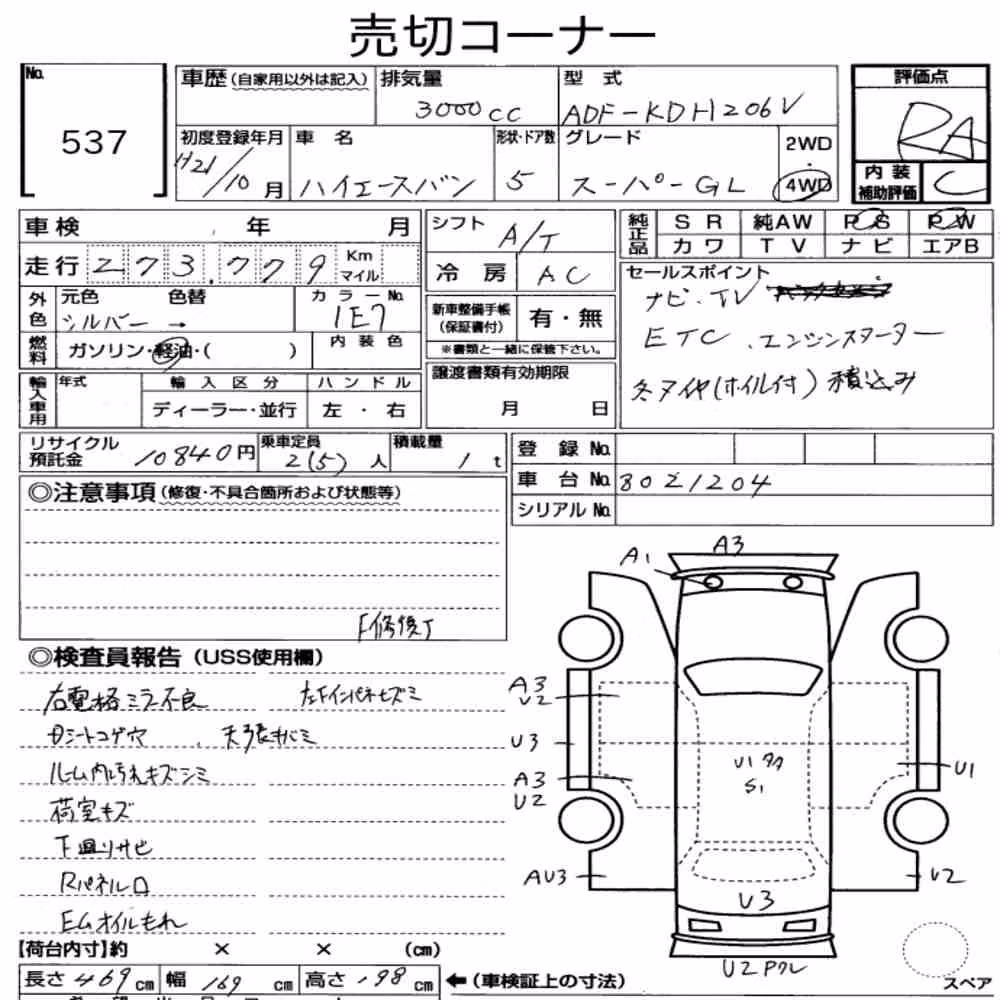 売切コーナー
No. 537
車歴（自家用以外は記入） 排気量 3000cc 型式 ADF-KDH206V
初度登録年月 H21/10月 車名 ハイエースバン 形状・ドア数 5 グレード スーパーGL 2WD・4WD
評価点 RA
内装補助評価 C
車検 年 月
走行 273,779 Km マイル
外色 元色 シルバー 色替 → カラーNo. 1E7
燃料 ガソリン・軽油・( ) 内装色
輸入車用 年式 輸入区分 ディーラー・並行 ハンドル 左・右
シフト A/T
冷房 AC
新車整備手帳（保証書付） 有・無
※書類と一緒に保管下さい。
譲渡書類有効期限
月 日
純正品 SR 純AW PS PW
カワ TV ナビ エアB
セールスポイント
ナビ・TV
ETC、エンジンスターター
冬タイヤ(ホイル付) 積込み
リサイクル預託金 10840円 乗車定員 2(5)人 積載量 1t
登録No.
車台No. 8021204
シリアルNo.
◎注意事項（修復・不具合箇所および状態等）
F修復了
◎検査員報告（USS使用欄）
右電格ミラー不良 左Fインパネキズミ
Dシートコゲ穴、天張キバミ
ルーム内汚れキズシミ
荷室キズ
下廻りサビ
Rパネル
EMオイルもれ
A1 A3
A3 U2
U3
A3 U2
AU3
U1 タタ S1
U1
U2
U3
U2 アクレ
スペア
【荷台内寸】約 × × (cm)
長さ 469cm 幅 169cm 高さ 198cm ←（車検証上の寸法）